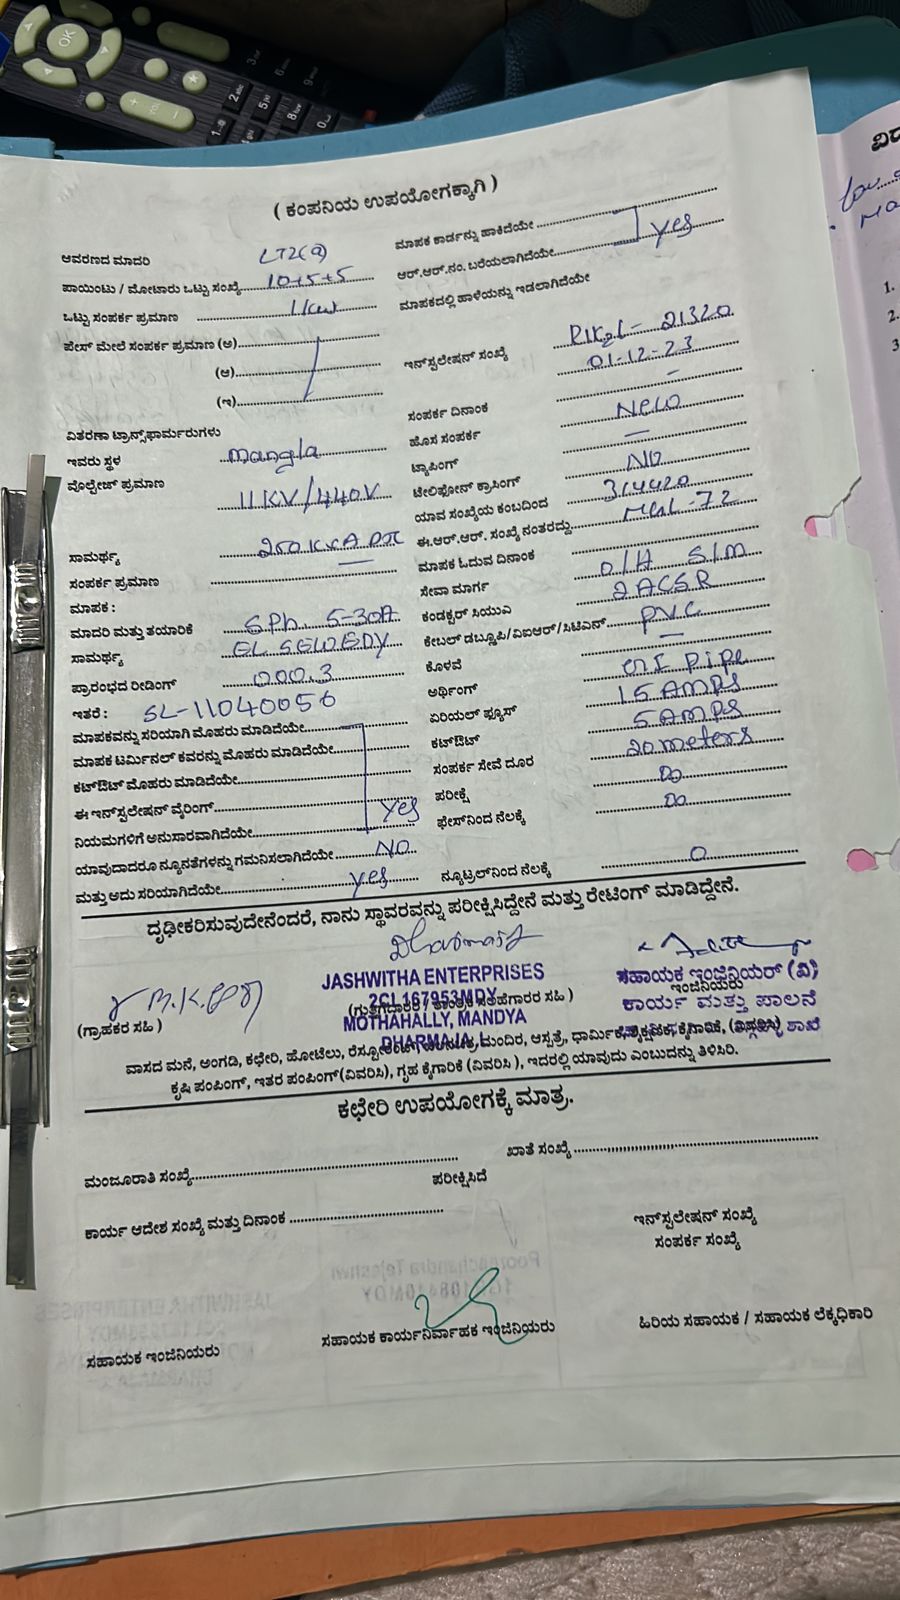 ( ಕಂಪನಿಯ ಉಪಯೋಗಕ್ಕಾಗಿ )
ಆವರಣದ ಮಾದರಿ LT2(a)
ಪಾಯಿಂಟು / ಮೋಟಾರು ಒಟ್ಟು ಸಂಖ್ಯೆ 10+5+5
ಒಟ್ಟು ಸಂಪರ್ಕ ಪ್ರಮಾಣ 1 Kw
ಪೇಸ್ ಮೇಲೆ ಸಂಪರ್ಕ ಪ್ರಮಾಣ (ಅ)
(ಆ)
(ಇ)
ವಿತರಣಾ ಟ್ರಾನ್ಸ್‌ಫಾರ್ಮರುಗಳು
ಇವರು ಸ್ಥಳ mangla
ವೊಲ್ಟೇಜ್ ಪ್ರಮಾಣ 11KV/440V
ಸಾಮರ್ಥ್ಯ 250 KVA
ಸಂಪರ್ಕ ಪ್ರಮಾಣ —
ಮಾಪಕ :
ಮಾದರಿ ಮತ್ತು ತಯಾರಿಕೆ SPh. 5-30A
ಸಾಮರ್ಥ್ಯ
ಪ್ರಾರಂಭದ ರೀಡಿಂಗ್ 000.3
ಇತರೆ : SL-11040056
ಮಾಪಕವನ್ನು ಸರಿಯಾಗಿ ಮೊಹರು ಮಾಡಿದೆಯೇ
ಮಾಪಕ ಟರ್ಮಿನಲ್ ಕವರನ್ನು ಮೊಹರು ಮಾಡಿದೆಯೇ
ಕಟ್‌ಔಟ್ ಮೊಹರು ಮಾಡಿದೆಯೇ
ಈ ಇನ್‌ಸ್ಟಲೇಷನ್ ವೈರಿಂಗ್ yes
ನಿಯಮಗಳಿಗೆ ಅನುಸಾರವಾಗಿದೆಯೇ
ಯಾವುದಾದರೂ ನ್ಯೂನತೆಗಳನ್ನು ಗಮನಿಸಲಾಗಿದೆಯೇ NO
ಮತ್ತು ಅದು ಸರಿಯಾಗಿದೆಯೇ yes
ಮಾಪಕ ಕಾರ್ಡನ್ನು ಹಾಕಿದೆಯೇ
ಆರ್.ಆರ್.ನಂ. ಬರೆಯಲಾಗಿದೆಯೇ yes
ಮಾಪಕದಲ್ಲಿ ಹಾಳೆಯನ್ನು ಇಡಲಾಗಿದೆಯೇ
ಇನ್‌ಸ್ಟಲೇಷನ್ ಸಂಖ್ಯೆ 21320
01-12-23
ಸಂಪರ್ಕ ದಿನಾಂಕ —
ಹೊಸ ಸಂಪರ್ಕ New
ಟ್ಯಾಪಿಂಗ್ —
ಟೇಲಿಫೋನ್ ಕ್ರಾಸಿಂಗ್ NO
ಯಾವ ಸಂಖ್ಯೆಯ ಕಂಬದಿಂದ 314420
ಈ.ಆರ್.ಆರ್. ಸಂಖ್ಯೆ ನಂತರದ್ದು
ಮಾಪಕ ಓದುವ ದಿನಾಂಕ
ಸೇವಾ ಮಾರ್ಗ O/H S/M
ಕಂಡಕ್ಟರ್ ಸಿಯುಎ 2 ACSR
ಕೇಬಲ್ ಡಬ್ಲೂಪಿ/ವಿಐಆರ್/ಸಿಟಿಎಸ್ PVC
ಕೊಳವೆ —
ಅರ್ಥಿಂಗ್ GI pipe
ಏರಿಯಲ್ ಫ್ಯೂಸ್ 15 AMPS
ಕಟ್‌ಔಟ್ 5 AMPS
ಸಂಪರ್ಕ ಸೇವೆ ದೂರ 20 meters
ಪರೀಕ್ಷೆ ∞
ಫೇಸ್‌ನಿಂದ ನೆಲಕ್ಕೆ ∞
ನ್ಯೂಟ್ರಲ್‌ನಿಂದ ನೆಲಕ್ಕೆ 0
ದೃಢೀಕರಿಸುವುದೇನೆಂದರೆ, ನಾನು ಸ್ಥಾವರವನ್ನು ಪರೀಕ್ಷಿಸಿದ್ದೇನೆ ಮತ್ತು ರೇಟಿಂಗ್ ಮಾಡಿದ್ದೇನೆ.
JASHWITHA ENTERPRISES
2CL167953MDY
MOTHAHALLY, MANDYA
DHARMAJA. L
(ಗ್ರಾಹಕರ ಸಹಿ )
ಸಹಾಯಕ ಇಂಜಿನಿಯರ್ (ವಿ)
ಇಂಜಿನಿಯರು
ಕಾರ್ಯ ಮತ್ತು ಪಾಲನೆ
ಶಾಖೆ
ವಾಸದ ಮನೆ, ಅಂಗಡಿ, ಕಛೇರಿ, ಹೋಟೆಲು, ಮಂದಿರ, ಆಸ್ಪತ್ರೆ, ಧಾರ್ಮಿಕ, ಶೈಕ್ಷಣಿಕ, ಕೈಗಾರಿಕೆ, (ವಿಸ್ತರಿಸಿ)
ಕೃಷಿ ಪಂಪಿಂಗ್, ಇತರ ಪಂಪಿಂಗ್(ವಿವರಿಸಿ), ಗೃಹ ಕೈಗಾರಿಕೆ (ವಿವರಿಸಿ ), ಇದರಲ್ಲಿ ಯಾವುದು ಎಂಬುದನ್ನು ತಿಳಿಸಿರಿ.
ಕಛೇರಿ ಉಪಯೋಗಕ್ಕೆ ಮಾತ್ರ.
ಮಂಜೂರಾತಿ ಸಂಖ್ಯೆ
ಖಾತೆ ಸಂಖ್ಯೆ
ಪರೀಕ್ಷಿಸಿದೆ
ಕಾರ್ಯ ಆದೇಶ ಸಂಖ್ಯೆ ಮತ್ತು ದಿನಾಂಕ
ಇನ್‌ಸ್ಟಲೇಷನ್ ಸಂಖ್ಯೆ
ಸಂಪರ್ಕ ಸಂಖ್ಯೆ
ಸಹಾಯಕ ಇಂಜಿನಿಯರು
ಸಹಾಯಕ ಕಾರ್ಯನಿರ್ವಾಹಕ ಇಂಜಿನಿಯರು
ಹಿರಿಯ ಸಹಾಯಕ / ಸಹಾಯಕ ಲೆಕ್ಕಧಿಕಾರಿ